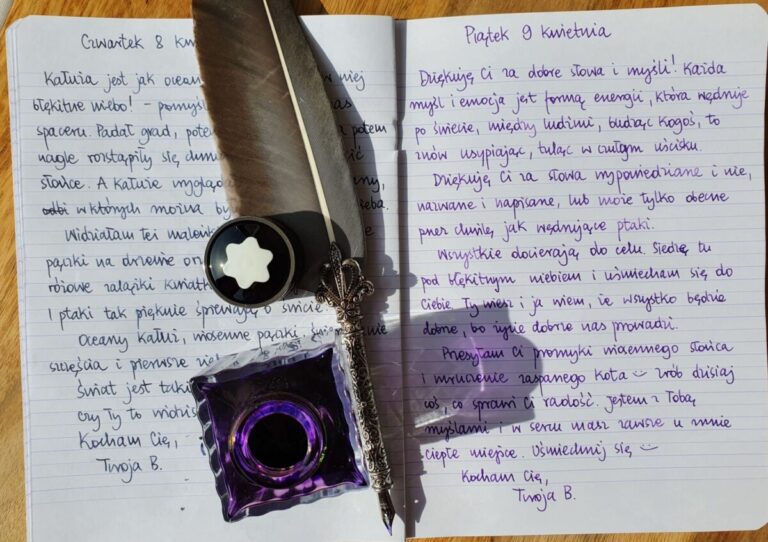 Czwartek 8
Kałuża jest jak ocean w niej
błękitne niebo! – pomyśl nas
spaceru. Padał grad, pote a potem
nagle rozstąpiły się chmu cić
słońce. A kałuże wygląda ny,
w których można by ieba.
Widziałam też malow
pączki na drzewie or
różowe zalążki kwiatk
I ptaki tak pięknie śpiewają o świcie
Oceany kałuż, wiosenne pączki, enie
szczęścia i pierwsze
świat jest taki
czy Ty to widzis
Kocham Cię,
Twoja B.
Piątek 9 kwietnia
Dziękuję Ci za dobre słowa i myśli! Każda
myśl i emocja jest formą energii, która wędruje
po świecie, między ludźmi, budząc kogoś, to
znów usypiając, tuląc w czułym uścisku.
Dziękuję Ci za słowa wypowiedziane i nie,
nazwane i napisane, lub może tylko obecne
przez chwilę jak wędrujące ptaki.
Wszystkie docierają do celu. Siedzę tu
pod błękitnym niebiem i uśmiecham się do
Ciebie. Ty wiesz i ja wiem, że wszystko będzie
dobrze, bo życie dobrze nas prowadzi.
Przesyłam Ci promyki wiosennego słońca
i mruczenie zaspanego kota zrób dzisiaj
coś, co sprawi Ci radość. Jestem z Tobą
myślami i w sercu masz zawsze u mnie
ciepłe miejsce. Uśmiechnij się
Kocham Cię,
Twoja B.